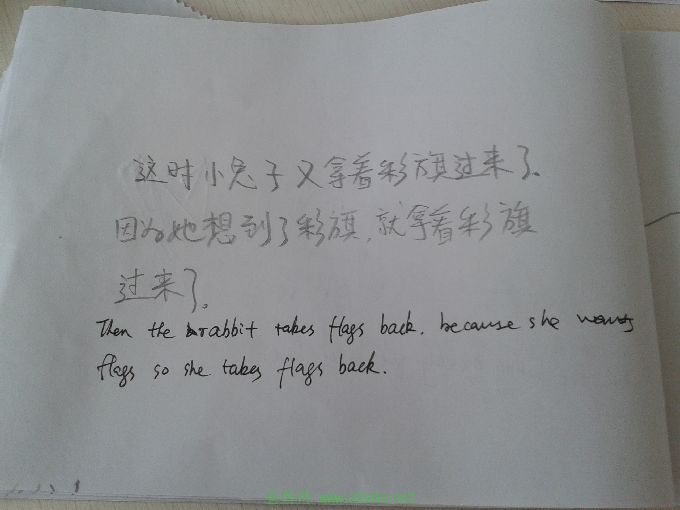 这时小兔子又拿着彩旗过来了.
因为她想到了彩旗,就拿着彩旗
过来了.
Then the rabbit takes flags back. because she wants
flags so she takes flags back.